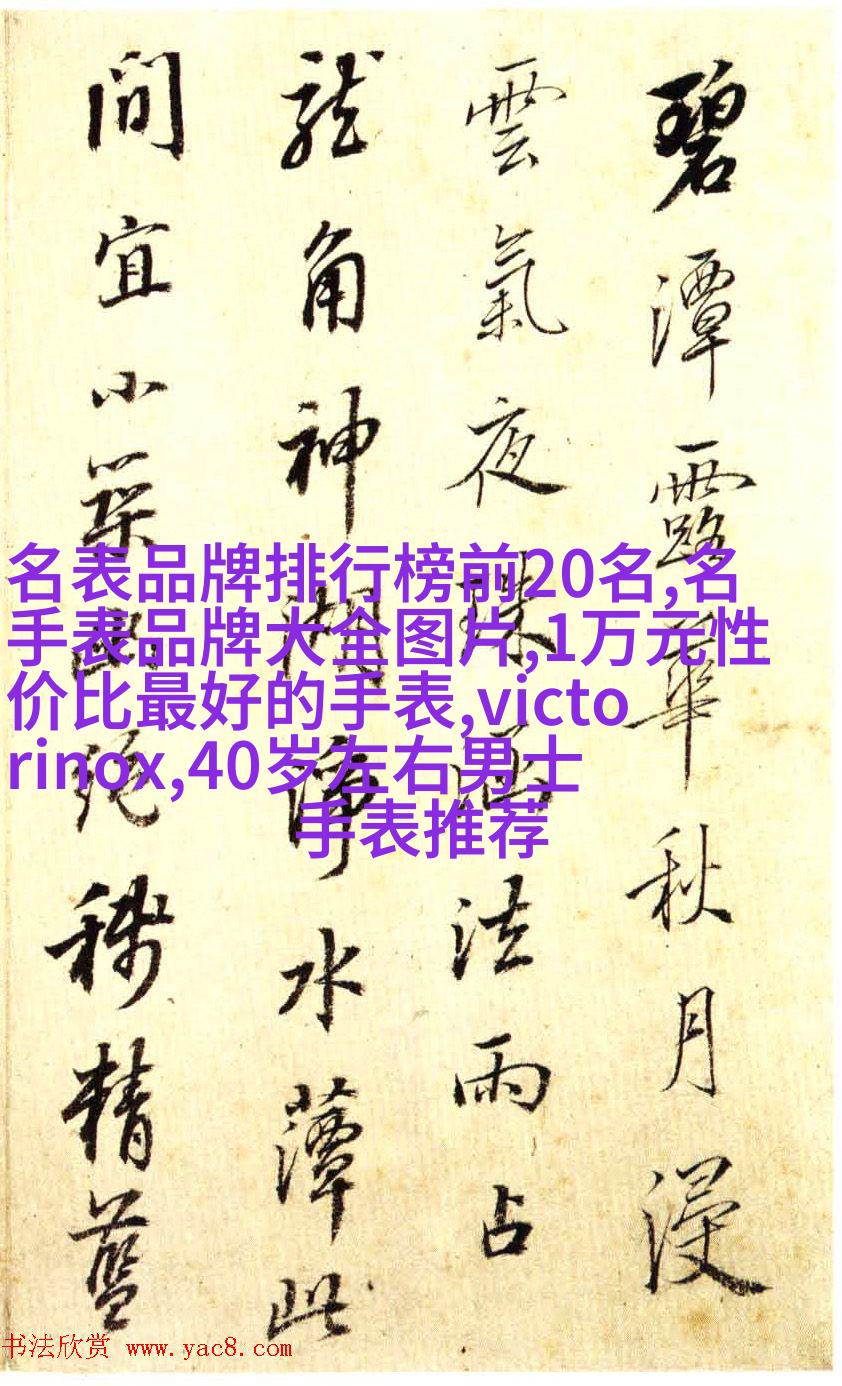 碧潭露華秋月浸
雲氣夜珠涵法雨占
龍角神湖水藫此
間宜小築幽絕稱精藍
名表品牌排行榜前20名,名
手表品牌大全图片,1万元性
价比最好的手表,victo
rinox,40岁左右男士
手表推荐
书法欣赏 www.yac8.com